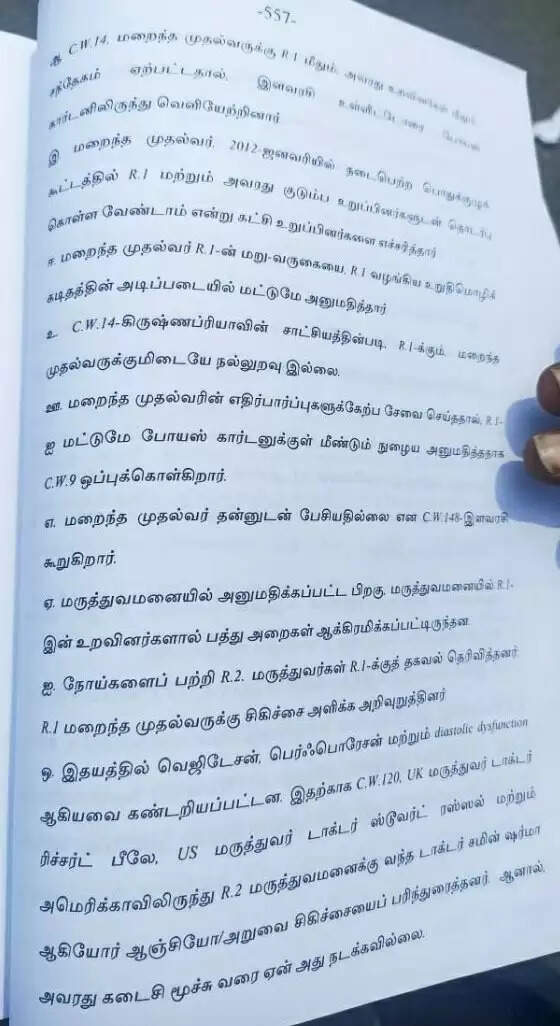 -557-
ஆ C.W.14, மறைந்த முதல்வருக்கு R.1 மீதும், அவரது உறவினர்கள் மீதும்
சந்தேகம் ஏற்பட்டதால், இளவரசி உள்ளிட்டோரை போயஸ்
கார்டனிலிருந்து வெளியேற்றினார்
இ மறைந்த முதல்வர், 2012-ஜனவரியில் நடைபெற்ற பொதுக்குழுக்
கூட்டத்தில் R.1 மற்றும் அவரது குடும்ப உறுப்பினர்களுடன் தொடர்பு
கொள்ள வேண்டாம் என்று கட்சி உறுப்பினர்களை எச்சரித்தார்
ஈ மறைந்த முதல்வர் R.1-ன் மறு-வருகையை, R.1 வழங்கிய உறுதிமொழிக்
கடிதத்தின் அடிப்படையில் மட்டுமே அனுமதித்தார்
உ C.W.14-கிருஷ்ணப்ரியாவின் சாட்சியத்தின்படி, R.1-க்கும், மறைந்த
முதல்வருக்குமிடையே நல்லுறவு இல்லை.
ஊ. மறைந்த முதல்வரின் எதிர்பார்ப்புகளுக்கேற்ப சேவை செய்ததால், R.1-
ஐ மட்டுமே போயஸ் கார்டனுக்குள் மீண்டும் நுழைய அனுமதித்ததாக
C.W.9 ஒப்புக்கொள்கிறார்.
எ. மறைந்த முதல்வர் தன்னுடன் பேசியதில்லை என C.W.148-இளவரசி
கூறுகிறார்.
ஏ. மருத்துவமனையில் அனுமதிக்கப்பட்ட பிறகு, மருத்துவமனையில் R.1-
இன் உறவினர்களால் பத்து அறைகள் ஆக்கிரமிக்கப்பட்டிருந்தன
ஐ. நோய்களைப் பற்றி R.2, மருத்துவர்கள் R.1-க்குத் தகவல் தெரிவித்தனர்.
R.1 மறைந்த முதல்வருக்கு சிகிச்சை அளிக்க அறிவுறுத்தினர்
ஒ. இதயத்தில் வெஜிடேசன், பெர்ஃபொரேசன் மற்றும் diastolic dysfunction
ஆகியவை கண்டறியப்பட்டன. இதற்காக C.W.120, UK மருத்துவர் டாக்டர்
ரிச்சர்ட் பீலே, US மருத்துவர் டாக்டர் ஸ்டூவர்ட் ரஸ்ஸல் மற்றும்
அமெரிக்காவிலிருந்து R.2 மருத்துவமனைக்கு வந்த டாக்டர் சமின் ஷர்மா
ஆகியோர் ஆஞ்சியோ/அறுவை சிகிச்சையைப் பரிந்துரைத்தனர் ஆனால்,
அவரது கடைசி மூச்சு வரை ஏன் அது நடக்கவில்லை.